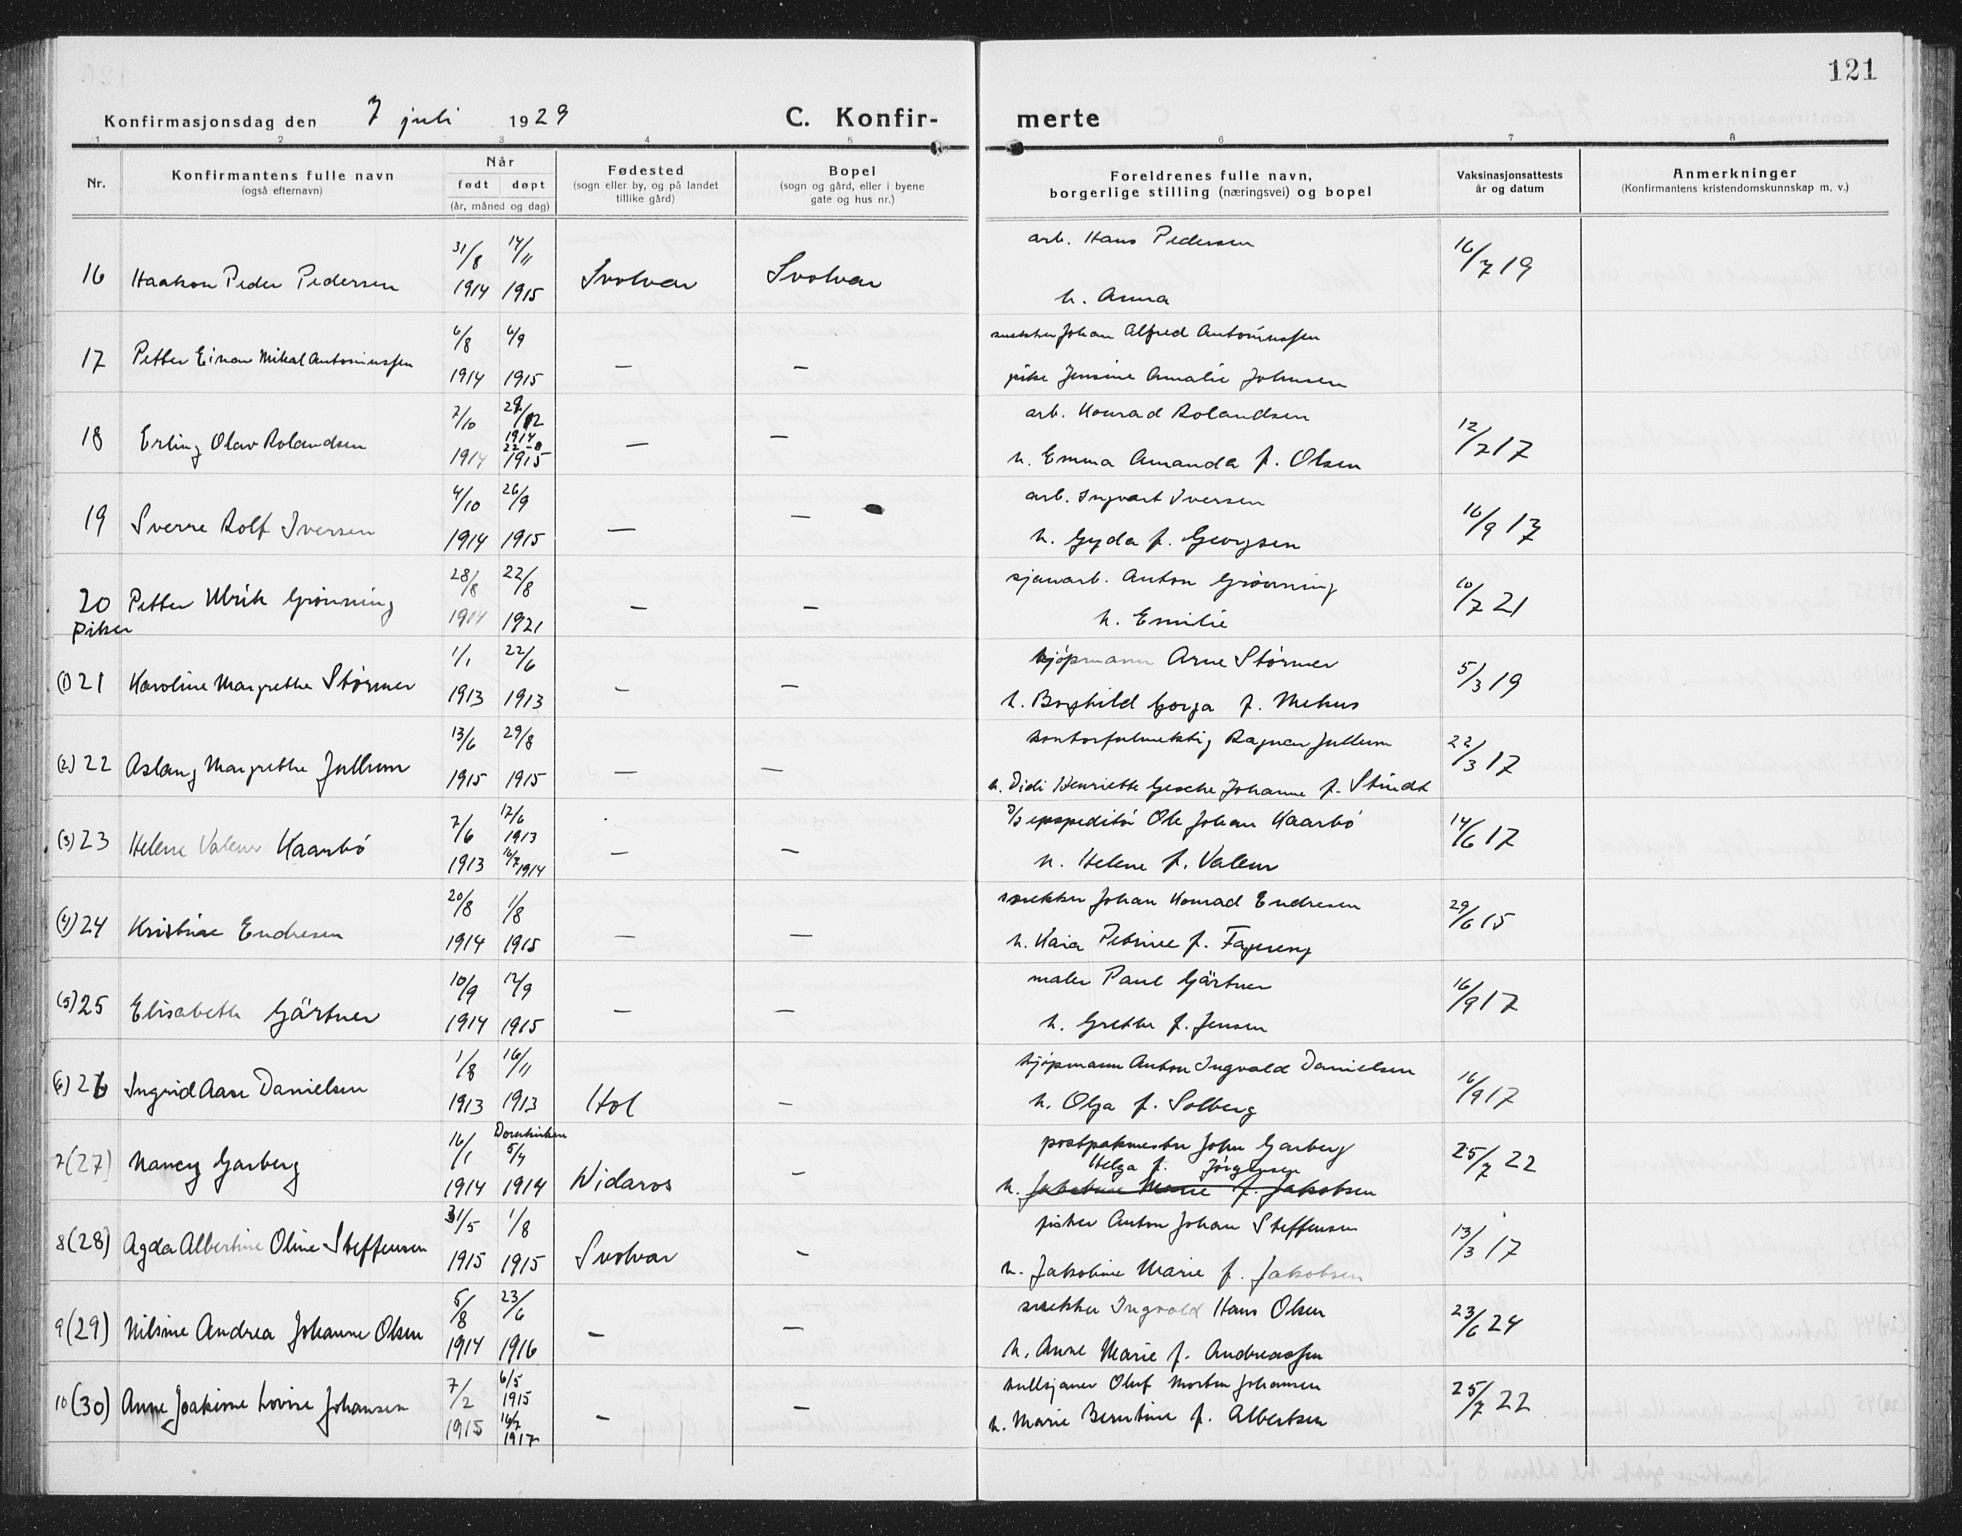 121
Konfirmasjonsdag den 7 juli 1929 C. Konfir- merte
1 2 3 4 5 6 7 8
Nr. Konfirmantens fulle navn (også efternavn) Når født døpt (år, måned og dag) Fødested (sogn eller by, og på landet tillike gård) Bopel (sogn og gård, eller i byene gate og hus nr.) Foreldrenes fulle navn, borgerlige stilling (næringsvei) og bopel Vaksinasjonsattests år og datum Anmerkninger (Konfirmantens kristendomskunnskap m. v.)
16 Haakon Peder Pedersen 31/8 1914 14/11 1915 Svolvær Svolvær arb. Hans Pedersen h. Anna 16/7 19
17 Petter Einar Mikal Antoniussen 6/8 1914 6/9 1915 — — snekker Johan Alfred Antoniussen pike Jensine Amalie Johnsen
18 Erling Olav Rolandsen 7/10 1914 1914 1915 — — arb. Konrad Rolandsen h. Emma Amanda f. Olsen 12/7 17
19 Sverre Rolf Iversen 4/10 1914 26/9 1915 — — arb. Ingvart Iversen h. Gyda f. Georgsen 16/9 17
20 Petter Ulrik Grønning 28/8 1914 22/8 1921 — — sjauarb. Anton Grønning h. Emilie 10/7 21
Piker
(1) 21 Karoline Margrethe Størmer 1/1 1913 22/6 1913 — — kjøpmann Arne Størmer h. Borghild Gorga f. Mehus 5/3 19
(2) 22 Aslaug Margrethe Jullum 13/6 1915 29/8 1915 — — kontorfulmektig Ragnar Jullum h. Didi Henriette Gesche Johanne f. Stindt 22/3 17
(3) 23 Helene Valeur Kaarbø 7/6 1913 17/6 1913 16/7 1914 — — D/S expeditør Ole Johan Kaarbø h. Helene f. Valeur 14/6 17
(4) 24 Kristine Endresen 20/8 1914 1/8 1915 — — snekker Johan Konrad Endresen h. Kaia Petrine f. Fagereng 29/6 15
(5) 25 Elisabeth Gärtner 10/9 1914 12/9 1915 — — maler Paul Gärtner h. Grethe f. Jensen 16/9 17
(6) 26 Ingrid Aase Danielsen 1/8 1913 16/11 1913 Hol — kjøpmann Anton Ingvald Danielsen h. Olga f. Solberg 16/9 17
7 (27) Nancy Garberg 16/1 1914 Domkirken 5/4 1914 Nidaros — postpakmester John Garberg h. Helga f. Jørgensen Jakobine Marie f. Jakobsen 25/7 22
8 (28) Agda Albertine Oline Steffensen 31/5 1915 1/8 1915 Svolvær — fisker Anton Johan Steffensen h. Jakobine Marie f. Jakobsen 13/3 17
9 (29) Nilsine Andrea Johanne Olsen 5/8 1914 23/6 1916 — — snekker Ingvald Hans Olsen h. Anne Marie f. Andreassen 23/6 24
10 (30) Anne Joakime Lovise Johansen 7/2 1915 6/5 1915 16/7 1917 — — Oluf Morten Johansen h. Marie Berntine f. Albertsen 25/7 22